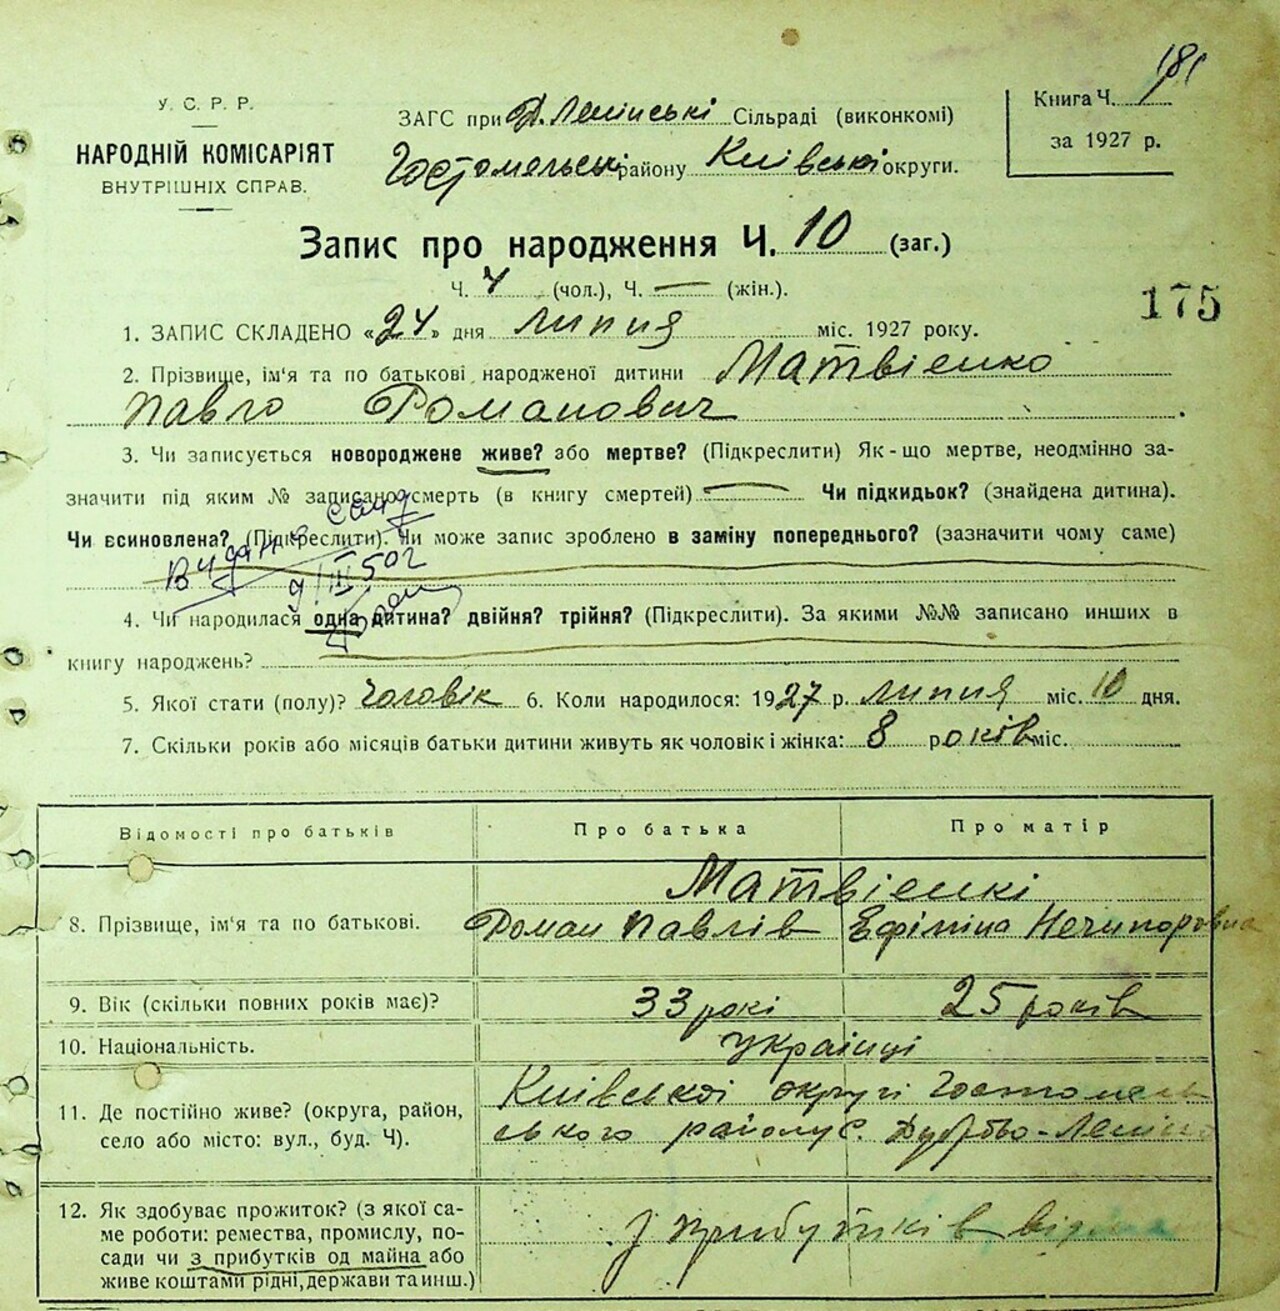 181
У. С. Р. Р.
НАРОДНІЙ КОМІСАРІЯТ
ВНУТРІШНІХ СПРАВ.
ЗАГС при Д. Ленінські Сільраді (виконкомі)
Гостомельськ району Київські округи.
Книга Ч.
за 1927 р.
Запис про народження Ч. 10 (заг.)
Ч. 4 (чол.), Ч. — (жін.).
175
1. ЗАПИС СКЛАДЕНО «24» дня липня міс. 1927 року.
2. Прізвище, ім'я та по батькові народженої дитини Матвієнко
Павло Романович
3. Чи записується новороджене живе? або мертве? (Підкреслити) Як-що мертве, неодмінно за-
значити під яким № записано смерть (в книгу смертей) — Чи підкидьок? (знайдена дитина).
Чи всиновлена? (Підкреслити). Чи може запис зроблено в заміну попереднього? (зазначити чому саме)
4. Чи народилася одна дитина? двійня? трійня? (Підкреслити). За якими №№ записано инших в
книгу народжень?
5. Якої стати (полу)? чоловік 6. Коли народилося: 1927 р. липня міс. 10 дня.
7. Скільки років або місяців батьки дитини живуть як чоловік і жінка: 8 років міс.
Відомості про батьків Про батька Про матір
Матвієнкі
8. Прізвище, ім'я та по батькові. Роман Павлів Ефіміна Нечипоровна
9. Вік (скільки повних років має)? 33 рокі 25 років
10. Національність. українці
11. Де постійно живе? (округа, район,
село або місто: вул., буд. Ч).
Київської округі Гостомель
ського району с. Дубово-Леніно
12. Як здобуває прожиток? (з якої са-
ме роботи: ремества, промислу, по-
сади чи з прибутків од майна або
живе коштами рідні, держави та инш.)
З прибутків від